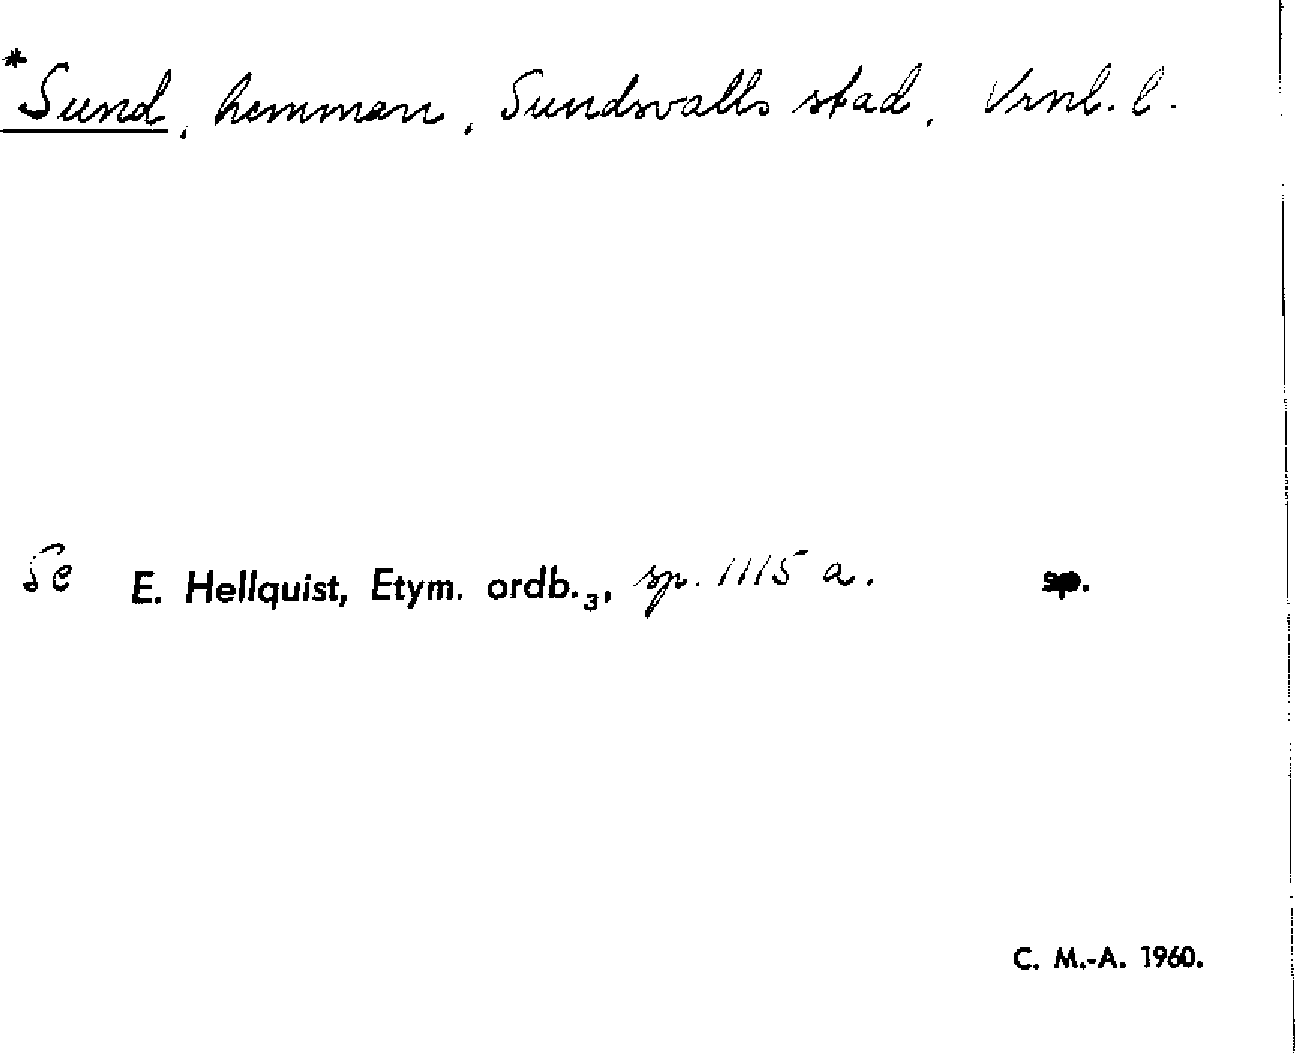 *Sund, hemman, Sundsvalls stad, Vrnl. l.
Se E. Hellquist, Etym. ordb.₃, sp. 1115 a. sp.
C. M.-A. 1960.